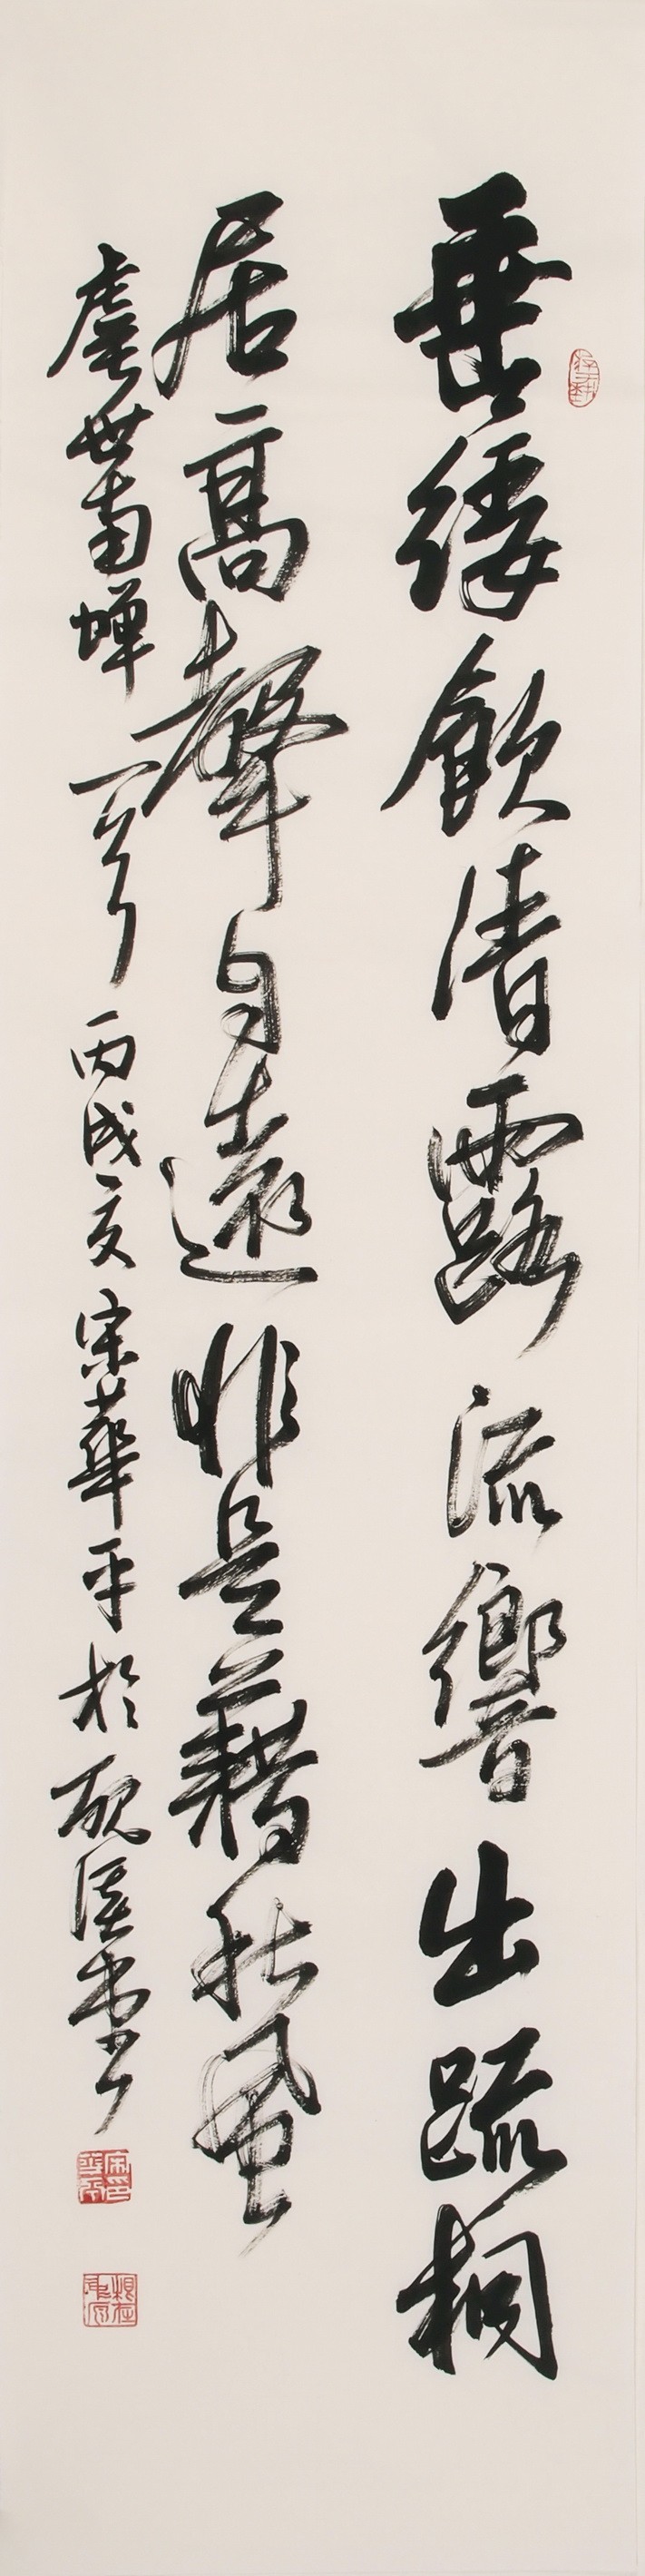 垂緌飲清露流響出疏桐
居高聲自遠非是藉秋風
虞世南蟬一首丙戌夏宋華平於硯溪堂